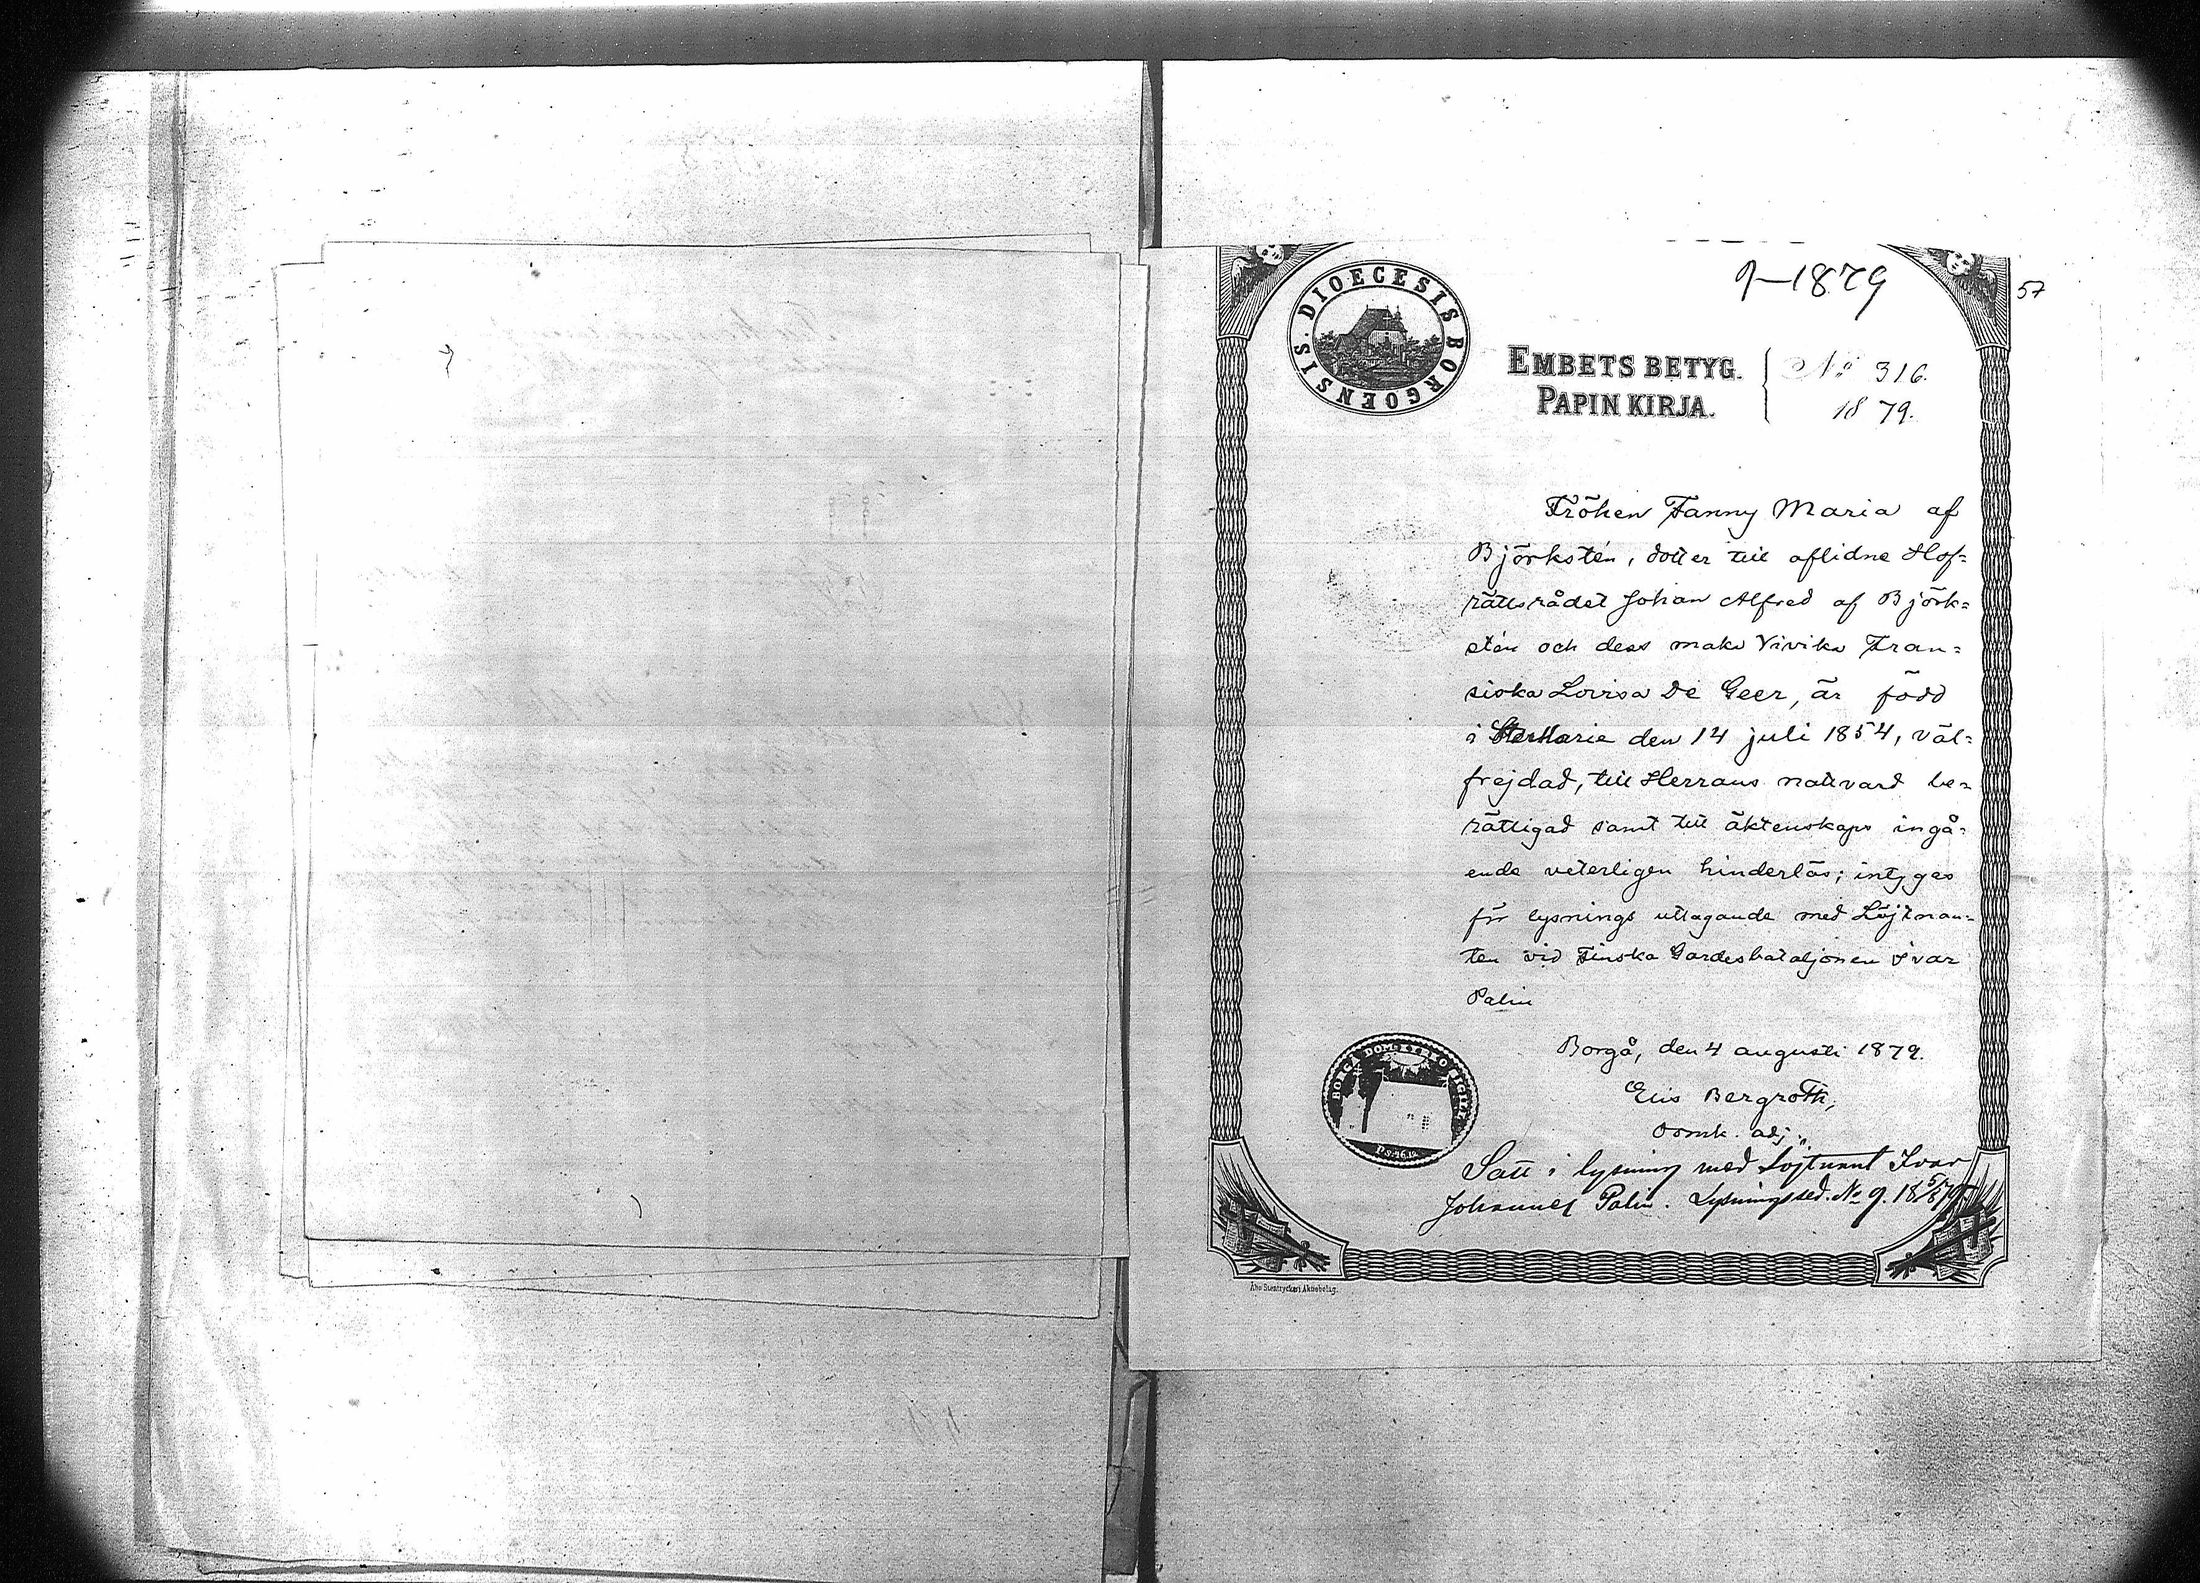 9–1879
57
DIOECESIS BORGOENSIS.
EMBETS BETYG.
PAPINKIRJA.
No 316.
1879.
Fröken Fanny Maria af
Björkstén, dotter till aflidne Hof=
rättsrådet Johan Alfred af Björk=
stén och dess maka Vivika Fran=
siska Lovisa De Geer, är född
i den 14 juli 1854, väl=
frejdad, till Herrans nattvard be=
rättigad samt till äktenskaps ingå=
ende veterligen hinderlös; intygas
för lysnings uttagande med Löjtnan=
ten vid Finska Gardesbataljonen Ivar
Palin
Borgå, den 4 augusti 1879.
Elis Bergroth,
domk. adj.
BORGÅ DOMKYRKO SIGILL
Satt i lysning med Löjtnant Ivar
Johannes Palin. Lysningssed. No 9. 18 5/8 79
Åbo Stentryckeri Aktiebolag.